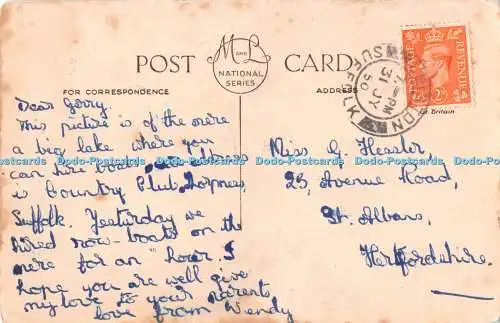 POST CARD
M and L
NATIONAL
SERIES
FOR CORRESPONDENCE
ADDRESS
Gt. Britain
POSTAGE
REVENUE
SUFFOLK
PM
31 JY
50
Dear Gerry.
This picture is of the mere
a big lake where you
can hire boats.
is Country Club Thorpness
Suffolk. Yesterday we
hired row-boats on the
mere for an hour. I
hope you are well give
my love to your parents
love from Wendy
Miss G. Heaslor,
25, Avenue Road,
St. Albans,
Hertfordshire.
Dodo-Postcards Dodo-Postcards Dodo-Postcards Dodo-Postcards Dodo-Postcards